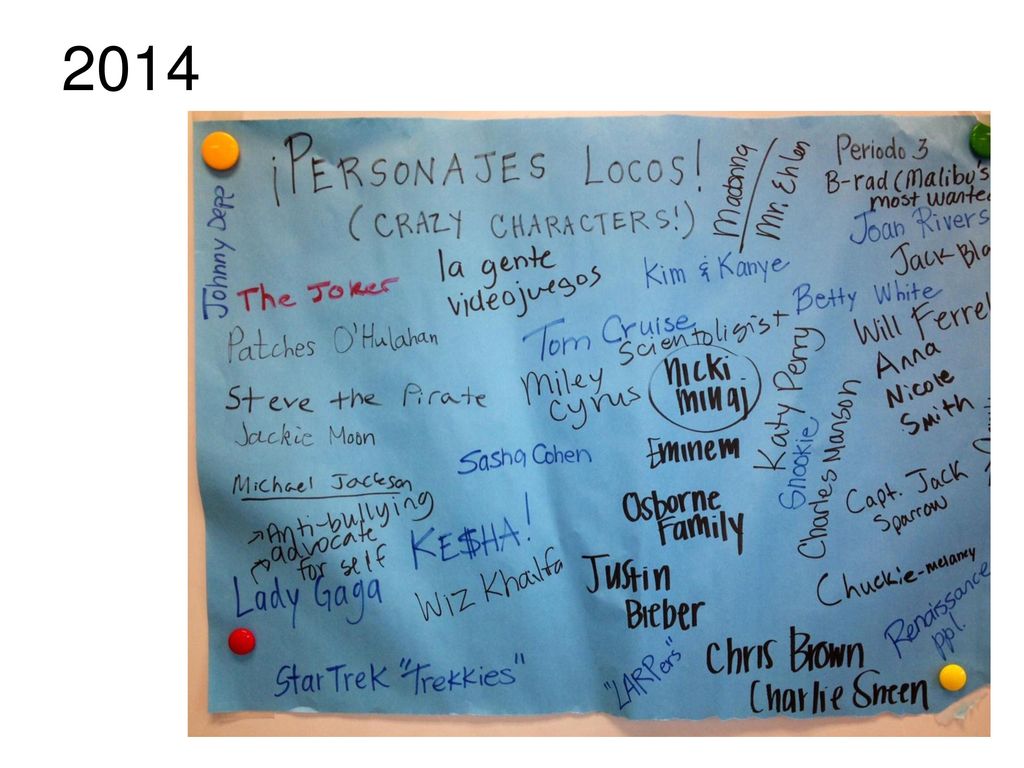 2014
¡PERSONAJES LOCOS!
(CRAZY CHARACTERS!)
Madonna
Mr. Ehlen
Periodo 3
B-rad (Malibu's
most wanted
Joan Rivers
Jack Bla
Johnny Depp
The Joker
la gente
videojuegos
Kim & Kanye
Betty White
Will Ferrel
Patches O'Hulahan
Tom Cruise
Scientoligist
Anna
Nicole
Smith
Steve the Pirate
Miley
Cyrus
Nicki
minaj
Katy Perry
Jackie Moon
Sasha Cohen
Eminem
Snookie
Charles Manson
Michael Jackson
Anti-bullying
advocate
for self
KE$HA!
Osborne
Family
Capt. Jack
Sparrow
Lady Gaga
Wiz Khalifa
Justin
Bieber
Chuckie-melaney
Renaissance
ppl.
StarTrek "Trekkies"
"LARPers"
Chris Brown
Charlie Sheen